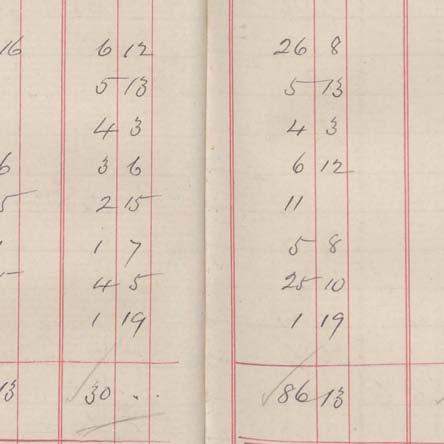 16 6 12 26 8
5 13 5 13
4 3 4 3
6 3 6 6 12
5 2 15 11
1 7 5 8
4 5 25 10
1 19 1 19
13 30 . . 86 13